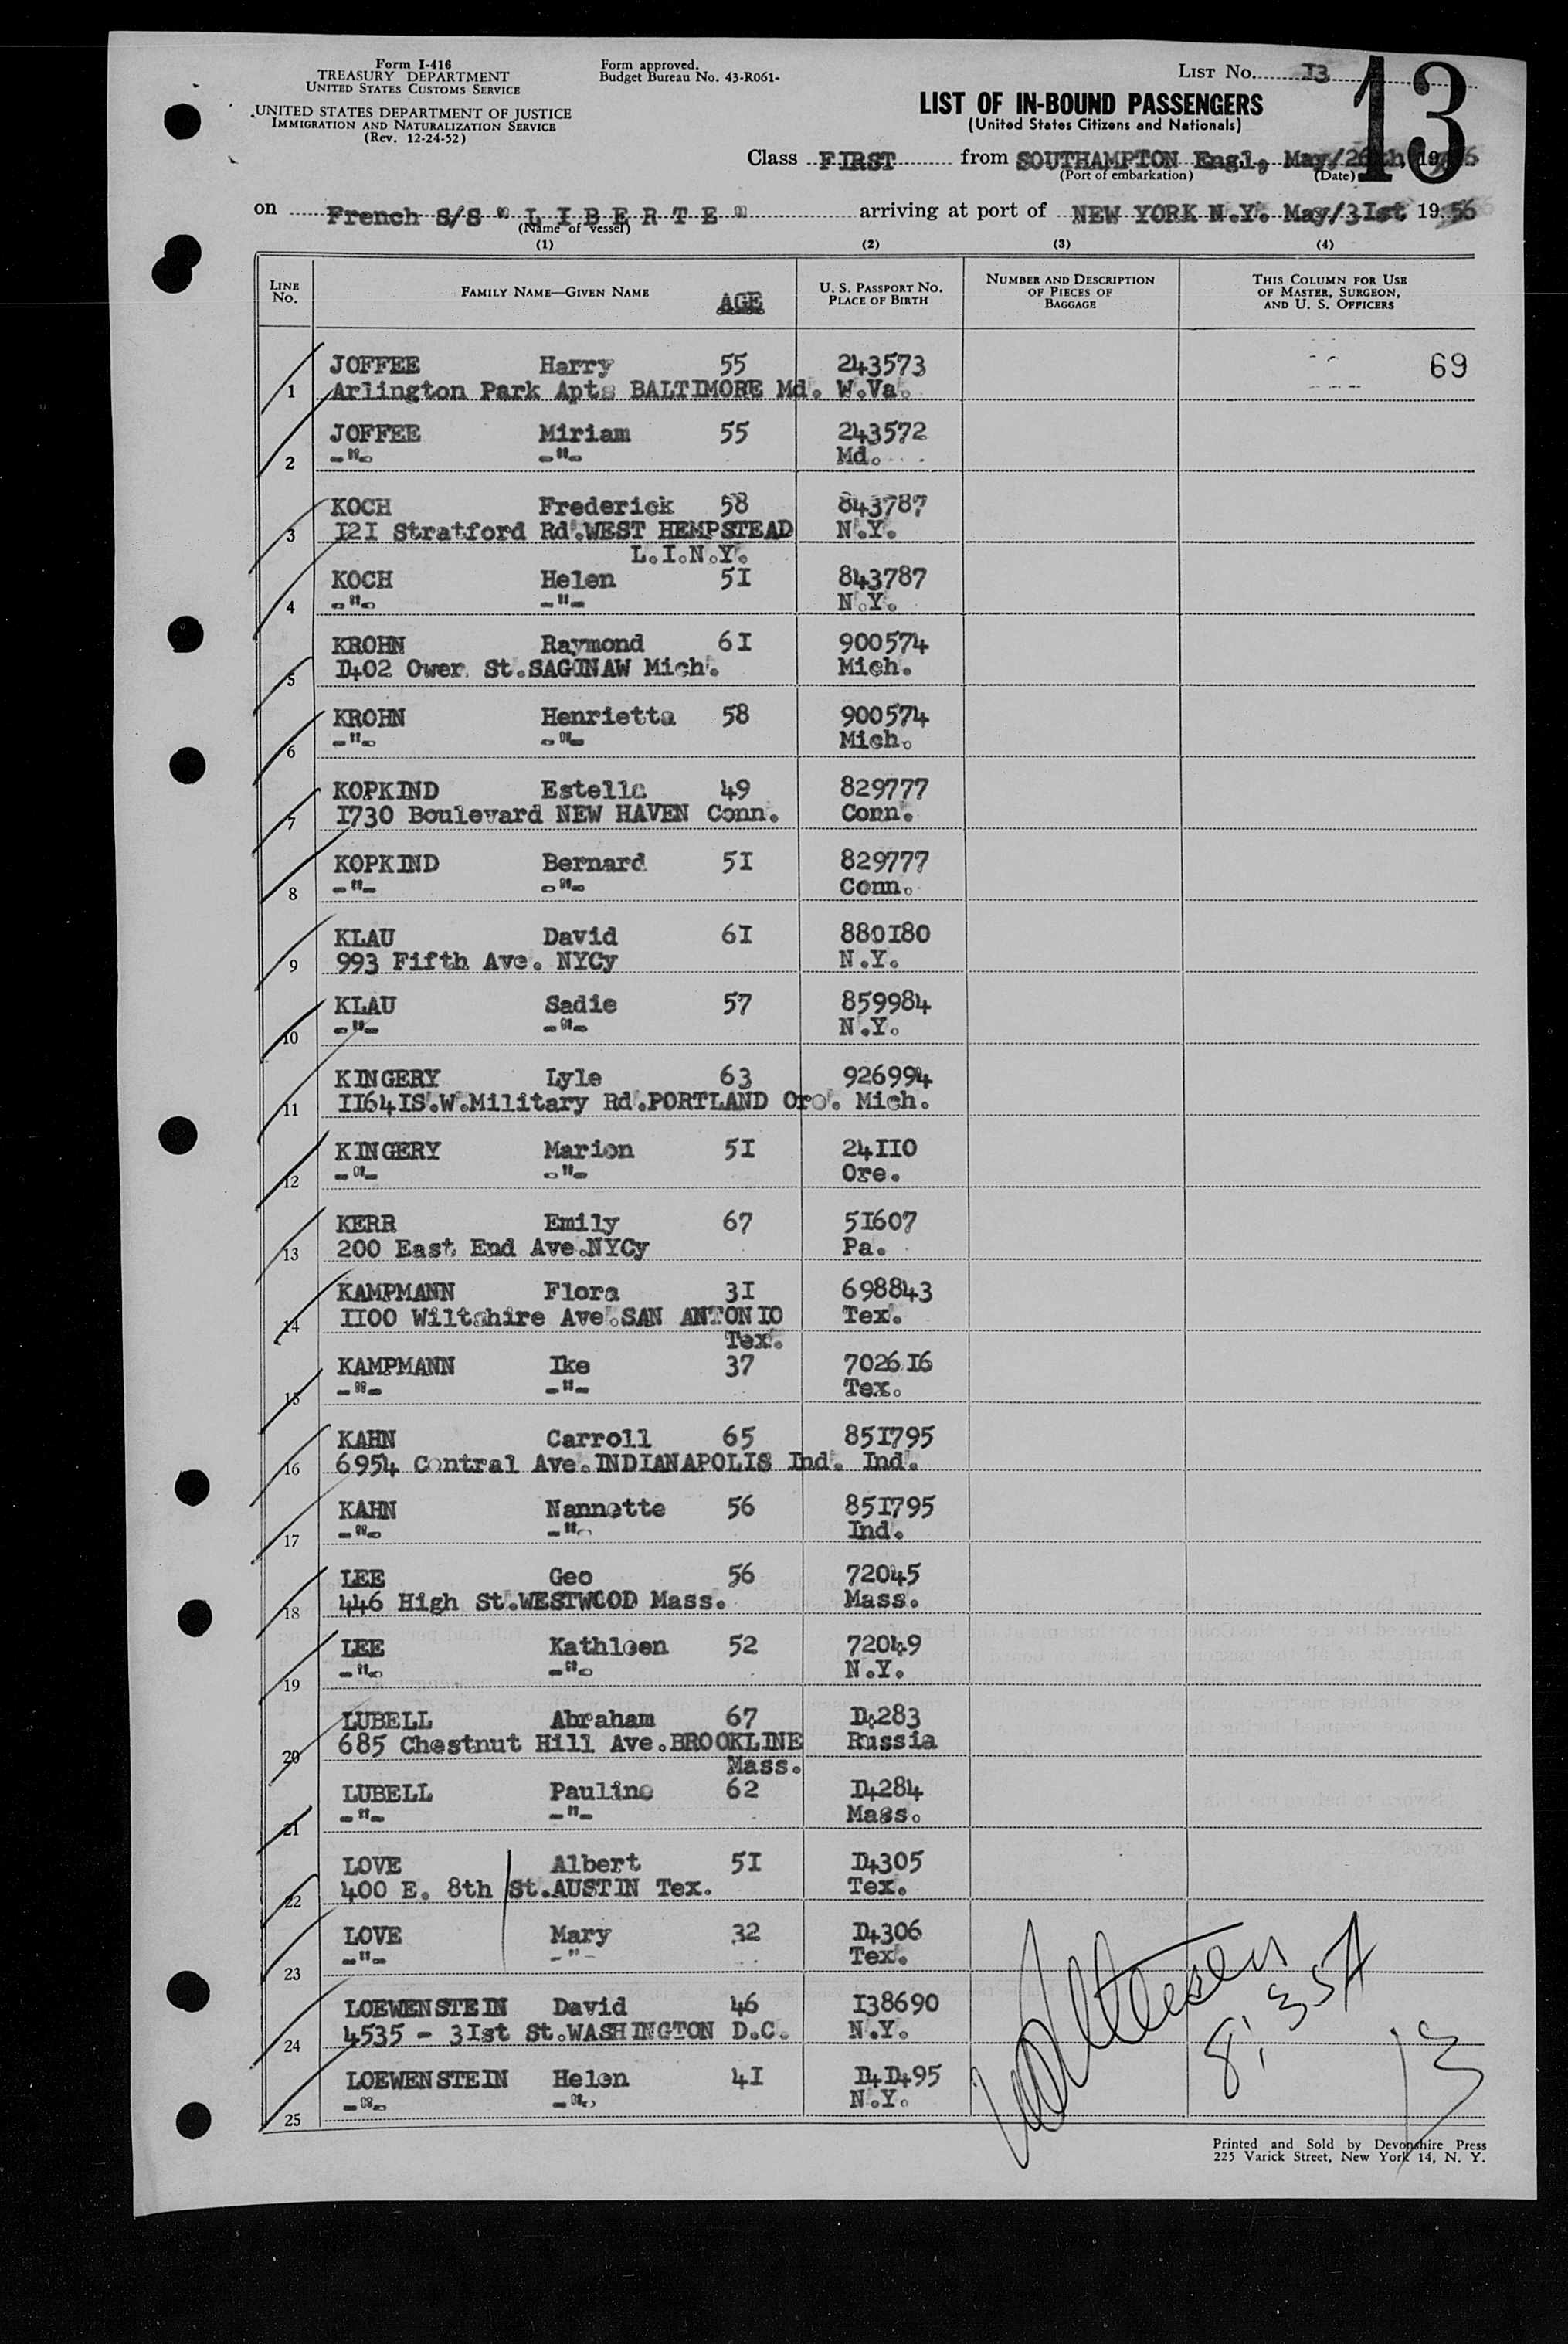 Form I-416
TREASURY DEPARTMENT
UNITED STATES CUSTOMS SERVICE
UNITED STATES DEPARTMENT OF JUSTICE
IMMIGRATION AND NATURALIZATION SERVICE
(Rev. 12-24-52)
Form approved.
Budget Bureau No. 43-R061-
LIST No. I3
13
LIST OF IN-BOUND PASSENGERS
(United States Citizens and Nationals)
Class FIRST from SOUTHAMPTON Engl, May/26th, 19
(Port of embarkation) (Date)
on French S/S " L I B E R T E " arriving at port of NEW YORK N.Y. May/3Ist 1956
(Name of vessel)
(1) (2) (3) (4)
LINE No. FAMILY NAME—GIVEN NAME AGE U. S. PASSPORT No. PLACE OF BIRTH NUMBER AND DESCRIPTION OF PIECES OF BAGGAGE THIS COLUMN FOR USE OF MASTER, SURGEON, AND U. S. OFFICERS
JOFFEE Harry 55 243573 69
1 Arlington Park Apts BALTIMORE Md. W.Va.
JOFFEE Miriam 55 243572
2 -"- -"- Md.
KOCH Frederick 58 843787
3 I2I Stratford Rd.WEST HEMPSTEAD N.Y.
L.I.N.Y.
KOCH Helen 5I 843787
4 -"- -"- N.Y.
KROHN Raymond 6I 900574
5 I402 Ower St.SAGINAW Mich. Mich.
KROHN Henrietta 58 900574
6 -"- -"- Mich.
KOPKIND Estelle 49 829777
7 I730 Boulevard NEW HAVEN Conn. Conn.
KOPKIND Bernard 5I 829777
8 -"- -"- Conn.
KLAU David 6I 880I80
9 993 Fifth Ave. NYCy N.Y.
KLAU Sadie 57 859984
10 -"- -"- N.Y.
KINGERY Lyle 63 926994
11 II64IS.W.Military Rd.PORTLAND Ore. Mich.
KINGERY Marion 5I 24II0
12 -"- -"- Ore.
KERR Emily 67 5I607
13 200 East End Ave.NYCy Pa.
KAMPMANN Flora 3I 698843
14 II00 Wiltshire Ave.SAN ANTONIO Tex.
Tex.
KAMPMANN Ike 37 7026I6
15 -"- -"- Tex.
KAHN Carroll 65 85I795
16 6954 Central Ave.INDIANAPOLIS Ind. Ind.
KAHN Nannette 56 85I795
17 -"- -"- Ind.
LEE Geo 56 72045
18 446 High St.WESTWOOD Mass. Mass.
LEE Kathleen 52 72049
19 -"- -"- N.Y.
LUBELL Abraham 67 I4283
20 685 Chestnut Hill Ave.BROOKLINE Russia
Mass.
LUBELL Pauline 62 I4284
21 -"- -"- Mass.
LOVE Albert 5I I4305
22 400 E. 8th St.AUSTIN Tex. Tex.
LOVE Mary 32 I4306
23 -"- -"- Tex.
LOEWENSTEIN David 46 I38690
24 4535 - 3Ist St.WASHINGTON D.C. N.Y.
LOEWENSTEIN Helen 4I I4I495
25 -"- -"- N.Y.
8:35A
13
Printed and Sold by Devonshire Press
225 Varick Street, New York 14, N. Y.